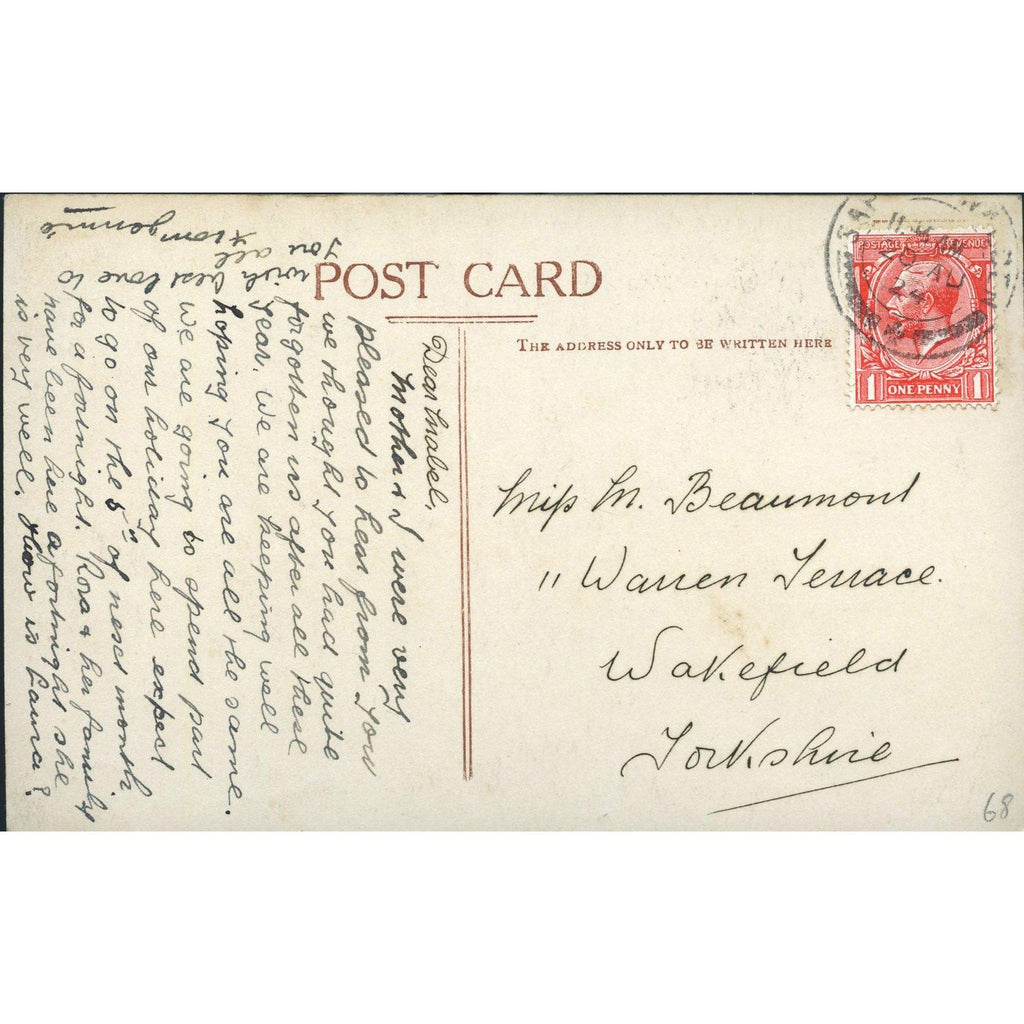 POST CARD
THE ADDRESS ONLY TO BE WRITTEN HERE
Dear Mabel,
Mother & I were very
pleased to hear from you
we thought you had quite
forgotten us after all these
year. We are keeping well
hoping you are all the same.
We are going to spend part
of our holiday here expect
to go on the 5" of next month
for a fournight. Rora & her family
have been here a fortnight she
is very well. How is Laura?
with best love to
you all
from Jennie
Miss M. Beaumont
11 Warren Terrace.
Wakefield
Yorkshire
POSTAGE REVENUE
1 ONE PENNY 1
11
20 AU
24
68